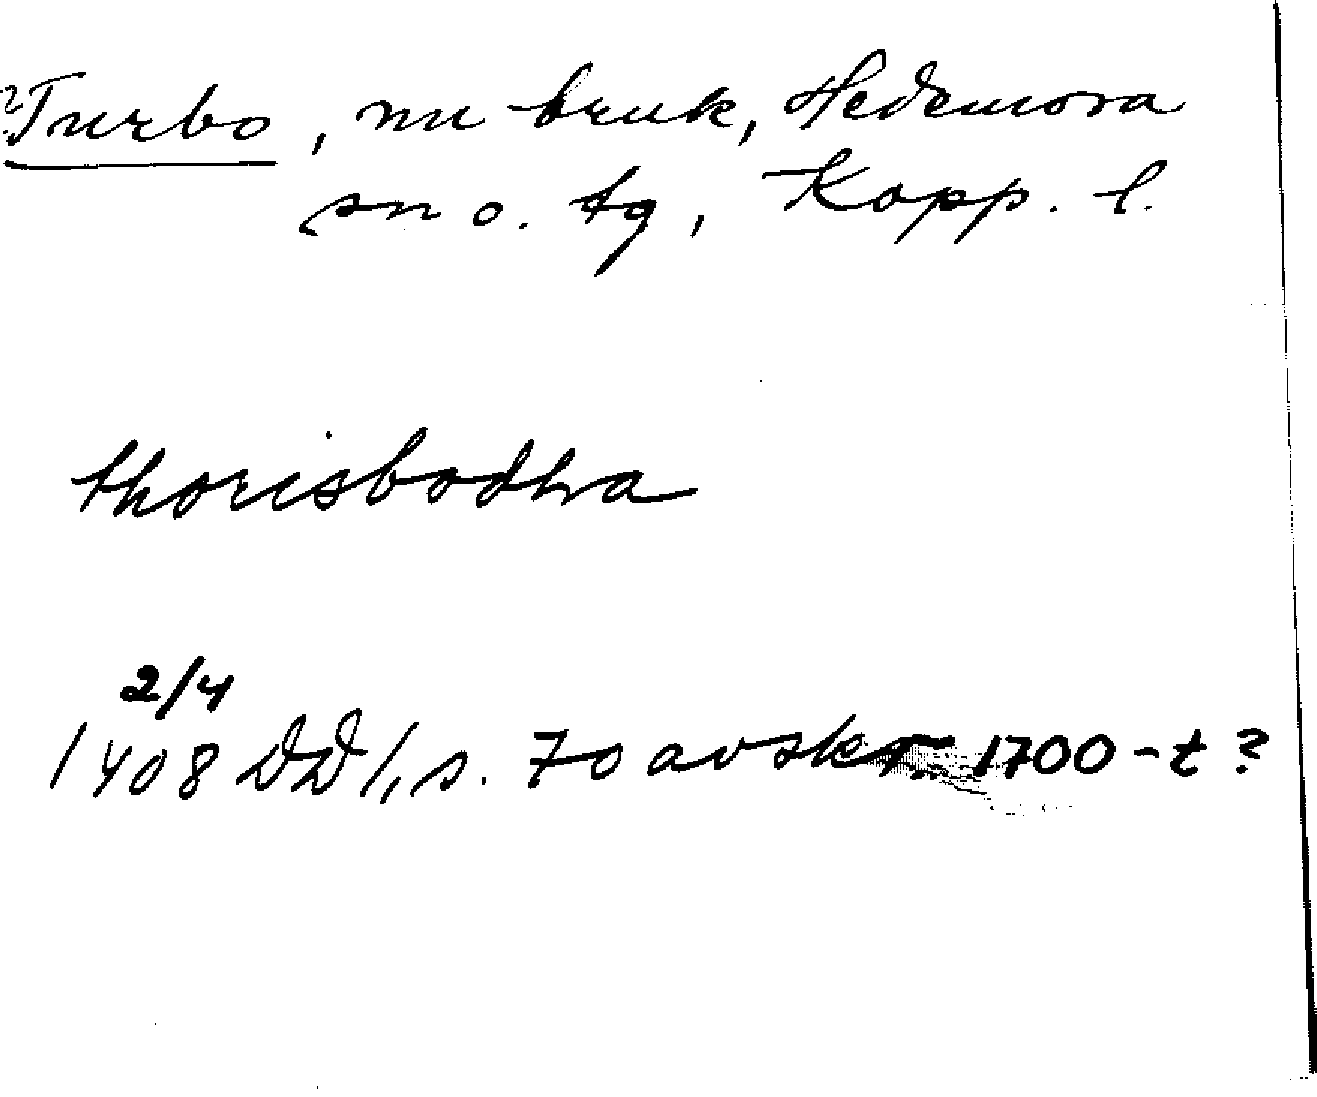 ?Turbo, nu bruk, Hedemora
sn o. tg, Kopp. l.
thorisbodha
2/4
1408 DD 1, s. 70 avskr. 1700-t?